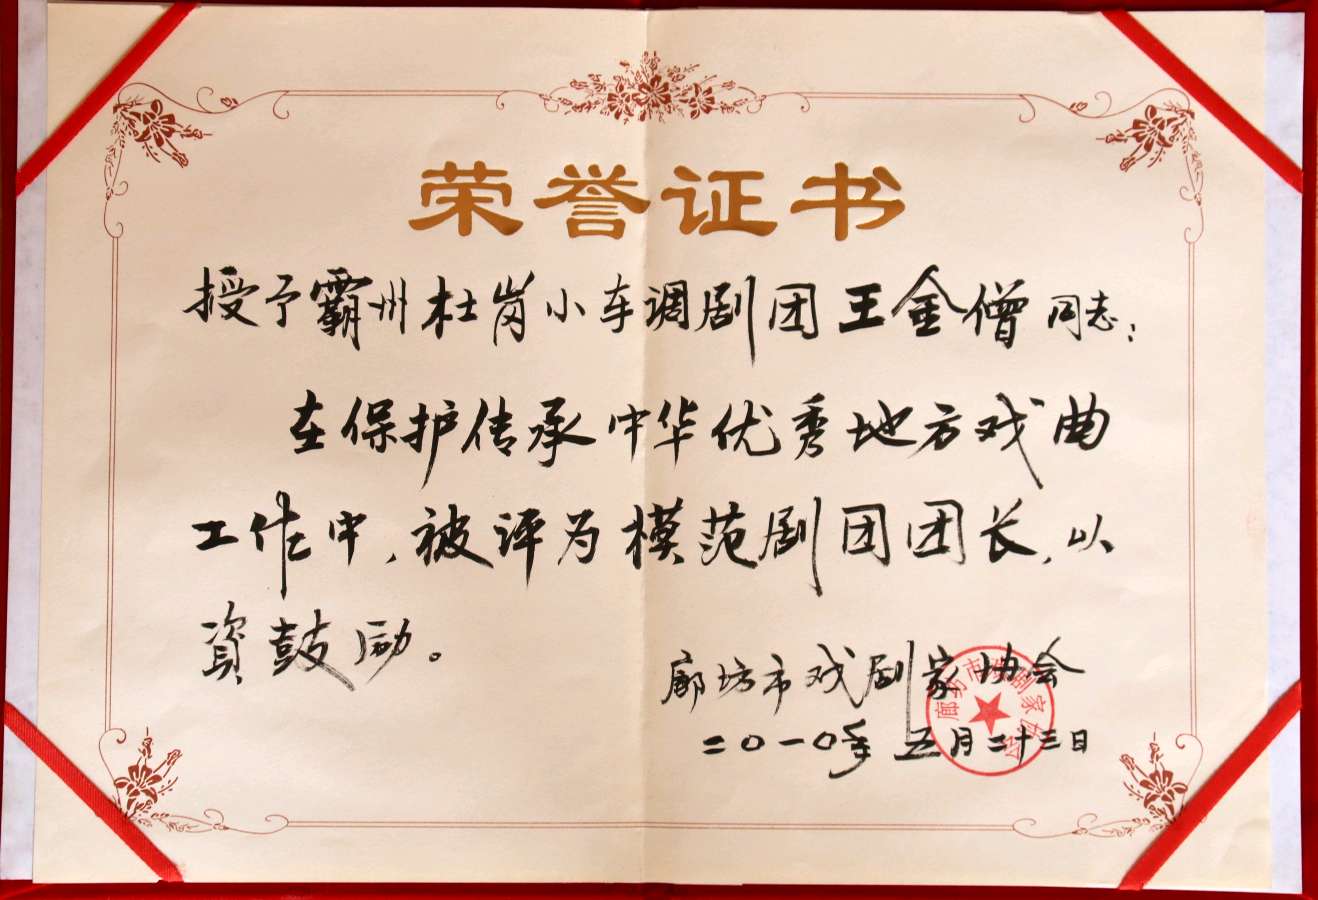 荣誉证书
授予霸州杜岗小车调剧团王金僧同志：
在保护传承中华优秀地方戏曲
工作中，被评为模范剧团团长，以
资鼓励。
廊坊市戏剧家协会
二〇一〇年五月二十三日
廊坊市戏剧家协会